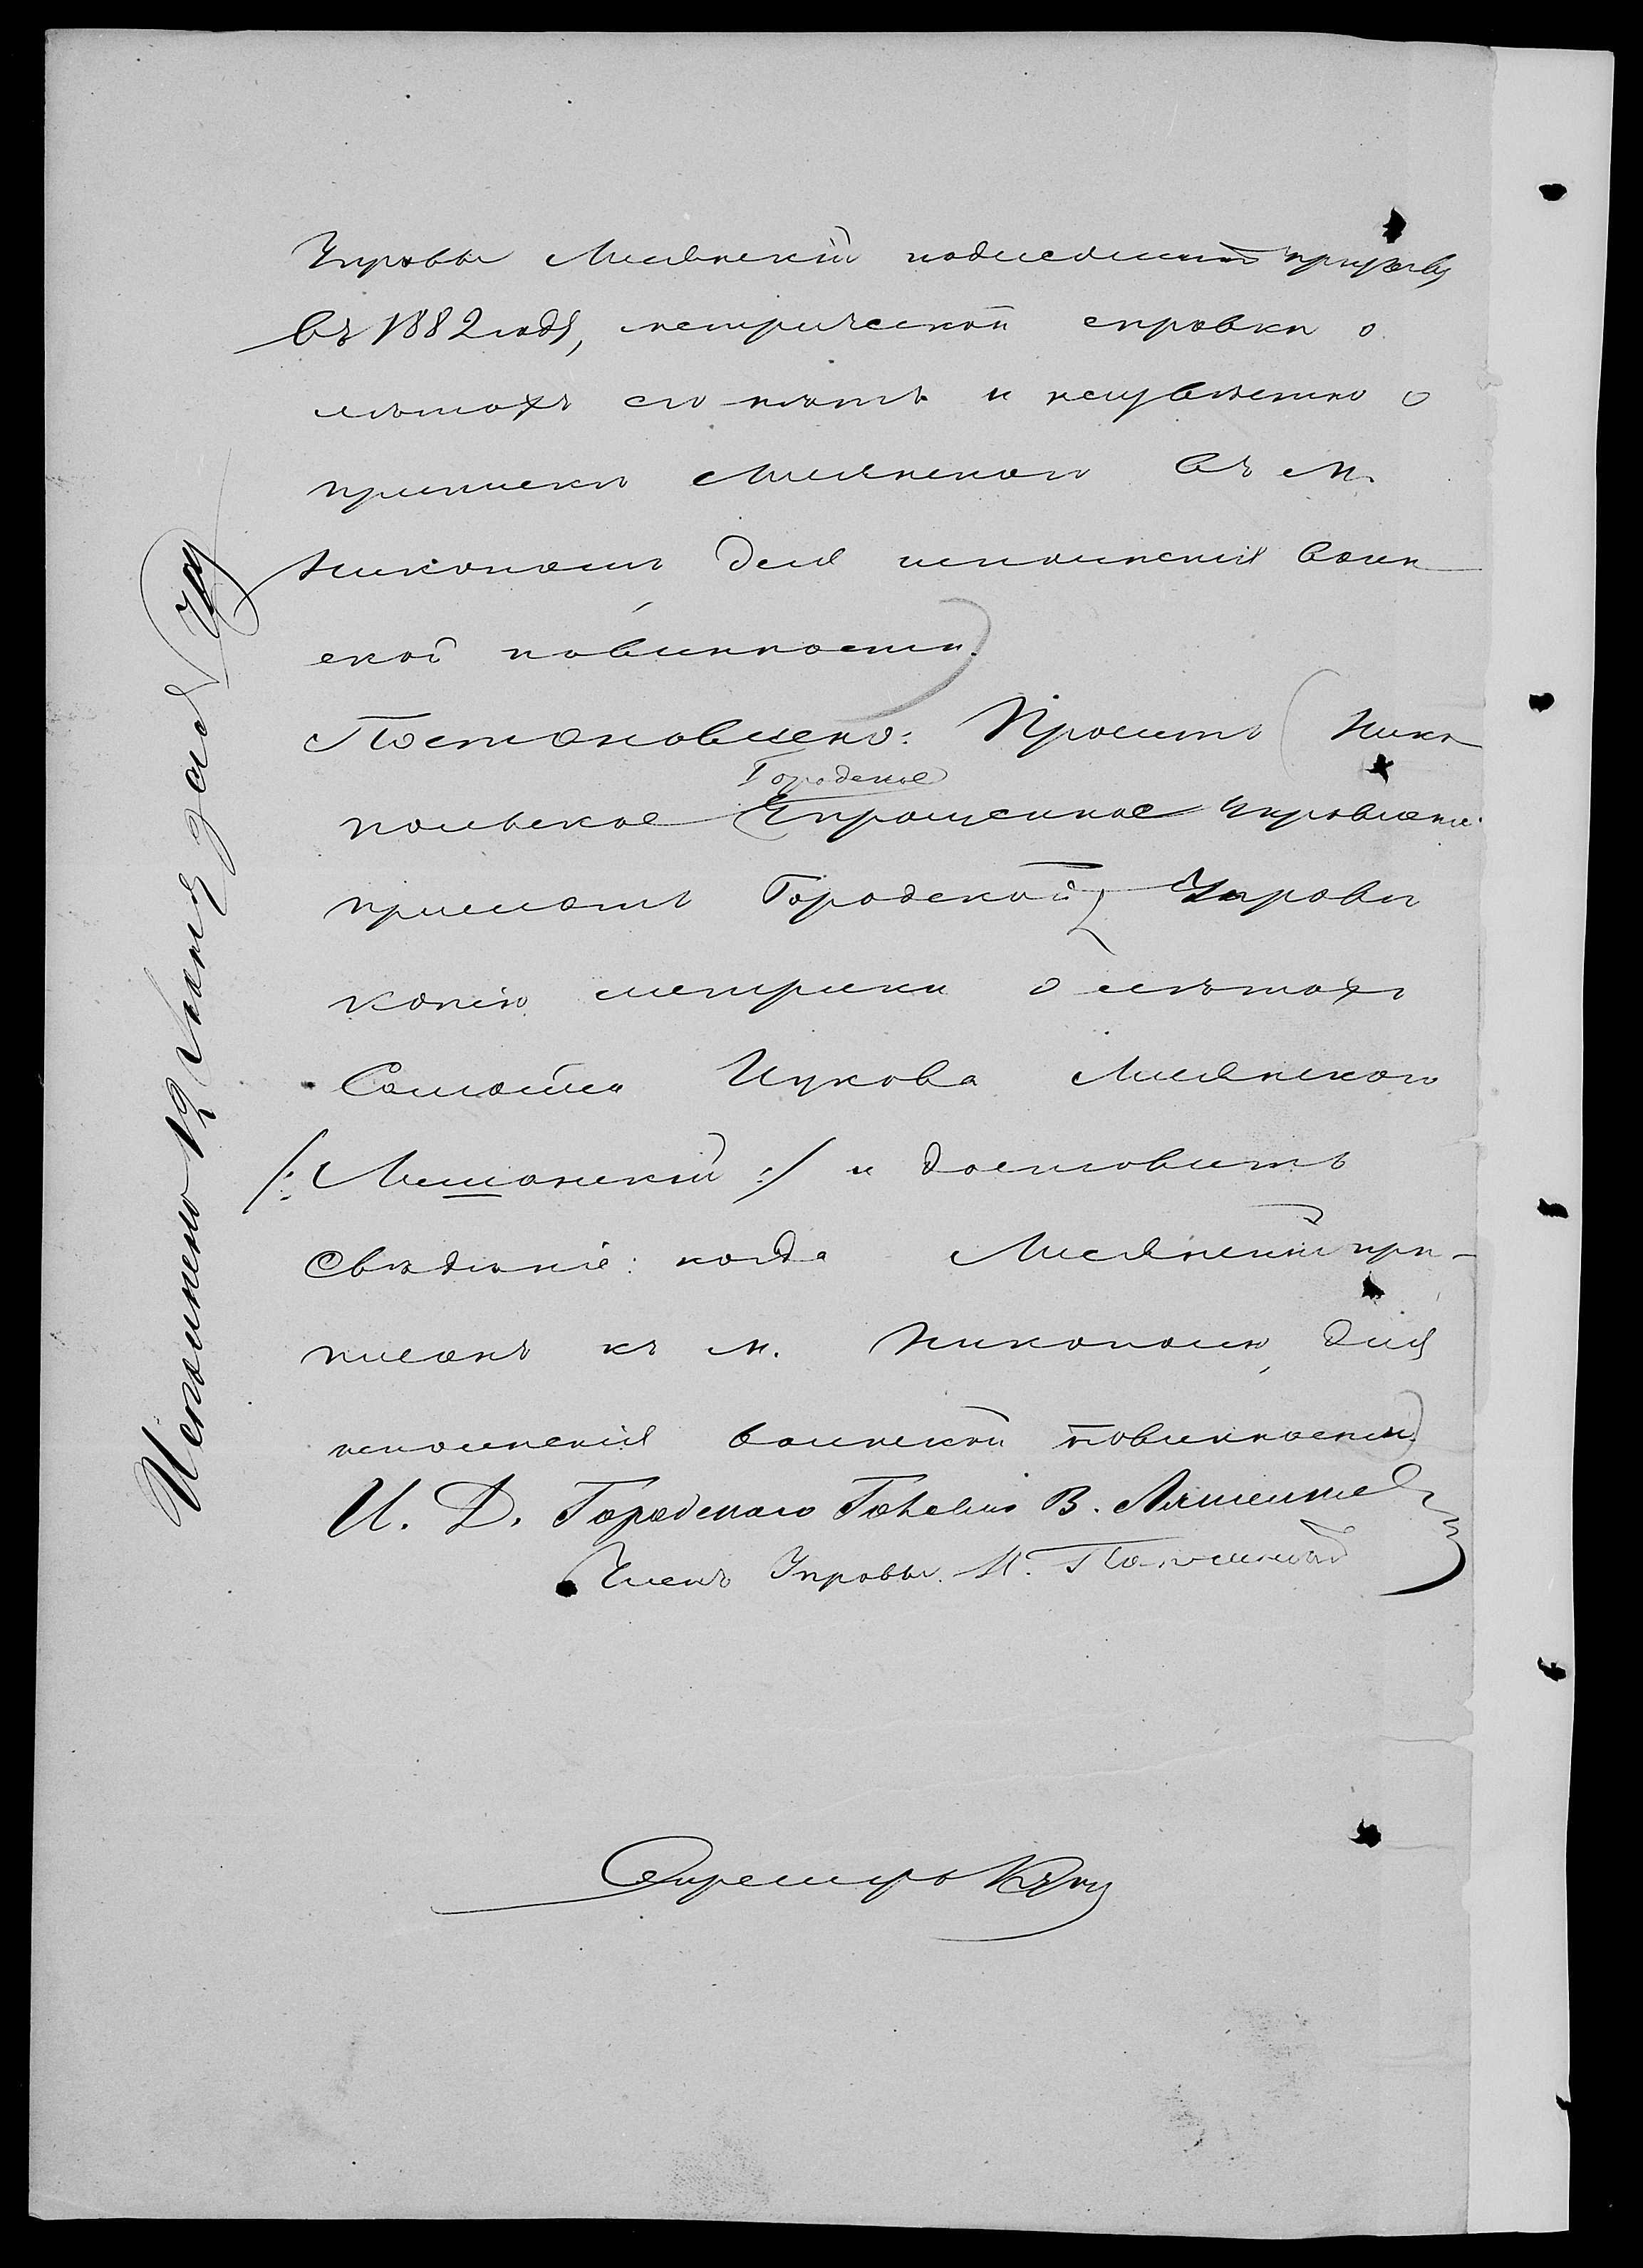 Управы Лисянскій подлежитъ призыву
въ 1882 году, метрической справки о
лѣтахъ его нѣтъ и неизвѣстно о
припискѣ Лисянскаго въ м.
Никополѣ для исполненія воин
ской повинности.
Постановлено: Просить Нико
Городское
польское Упрощенное Управленіе
прислать Городской Управѣ
копію метрики о лѣтахъ
Самойла Ицкова Лисянскаго
/: Лишанскій :/ и доставить
свѣдѣніе: когда Лисянскій при-
писанъ къ м. Никополю, для
исполненія воинской повинности
И. Д. Городскаго Головы В.
Членъ Управы М.
Секретарь
Исполнено 12 Мая за №